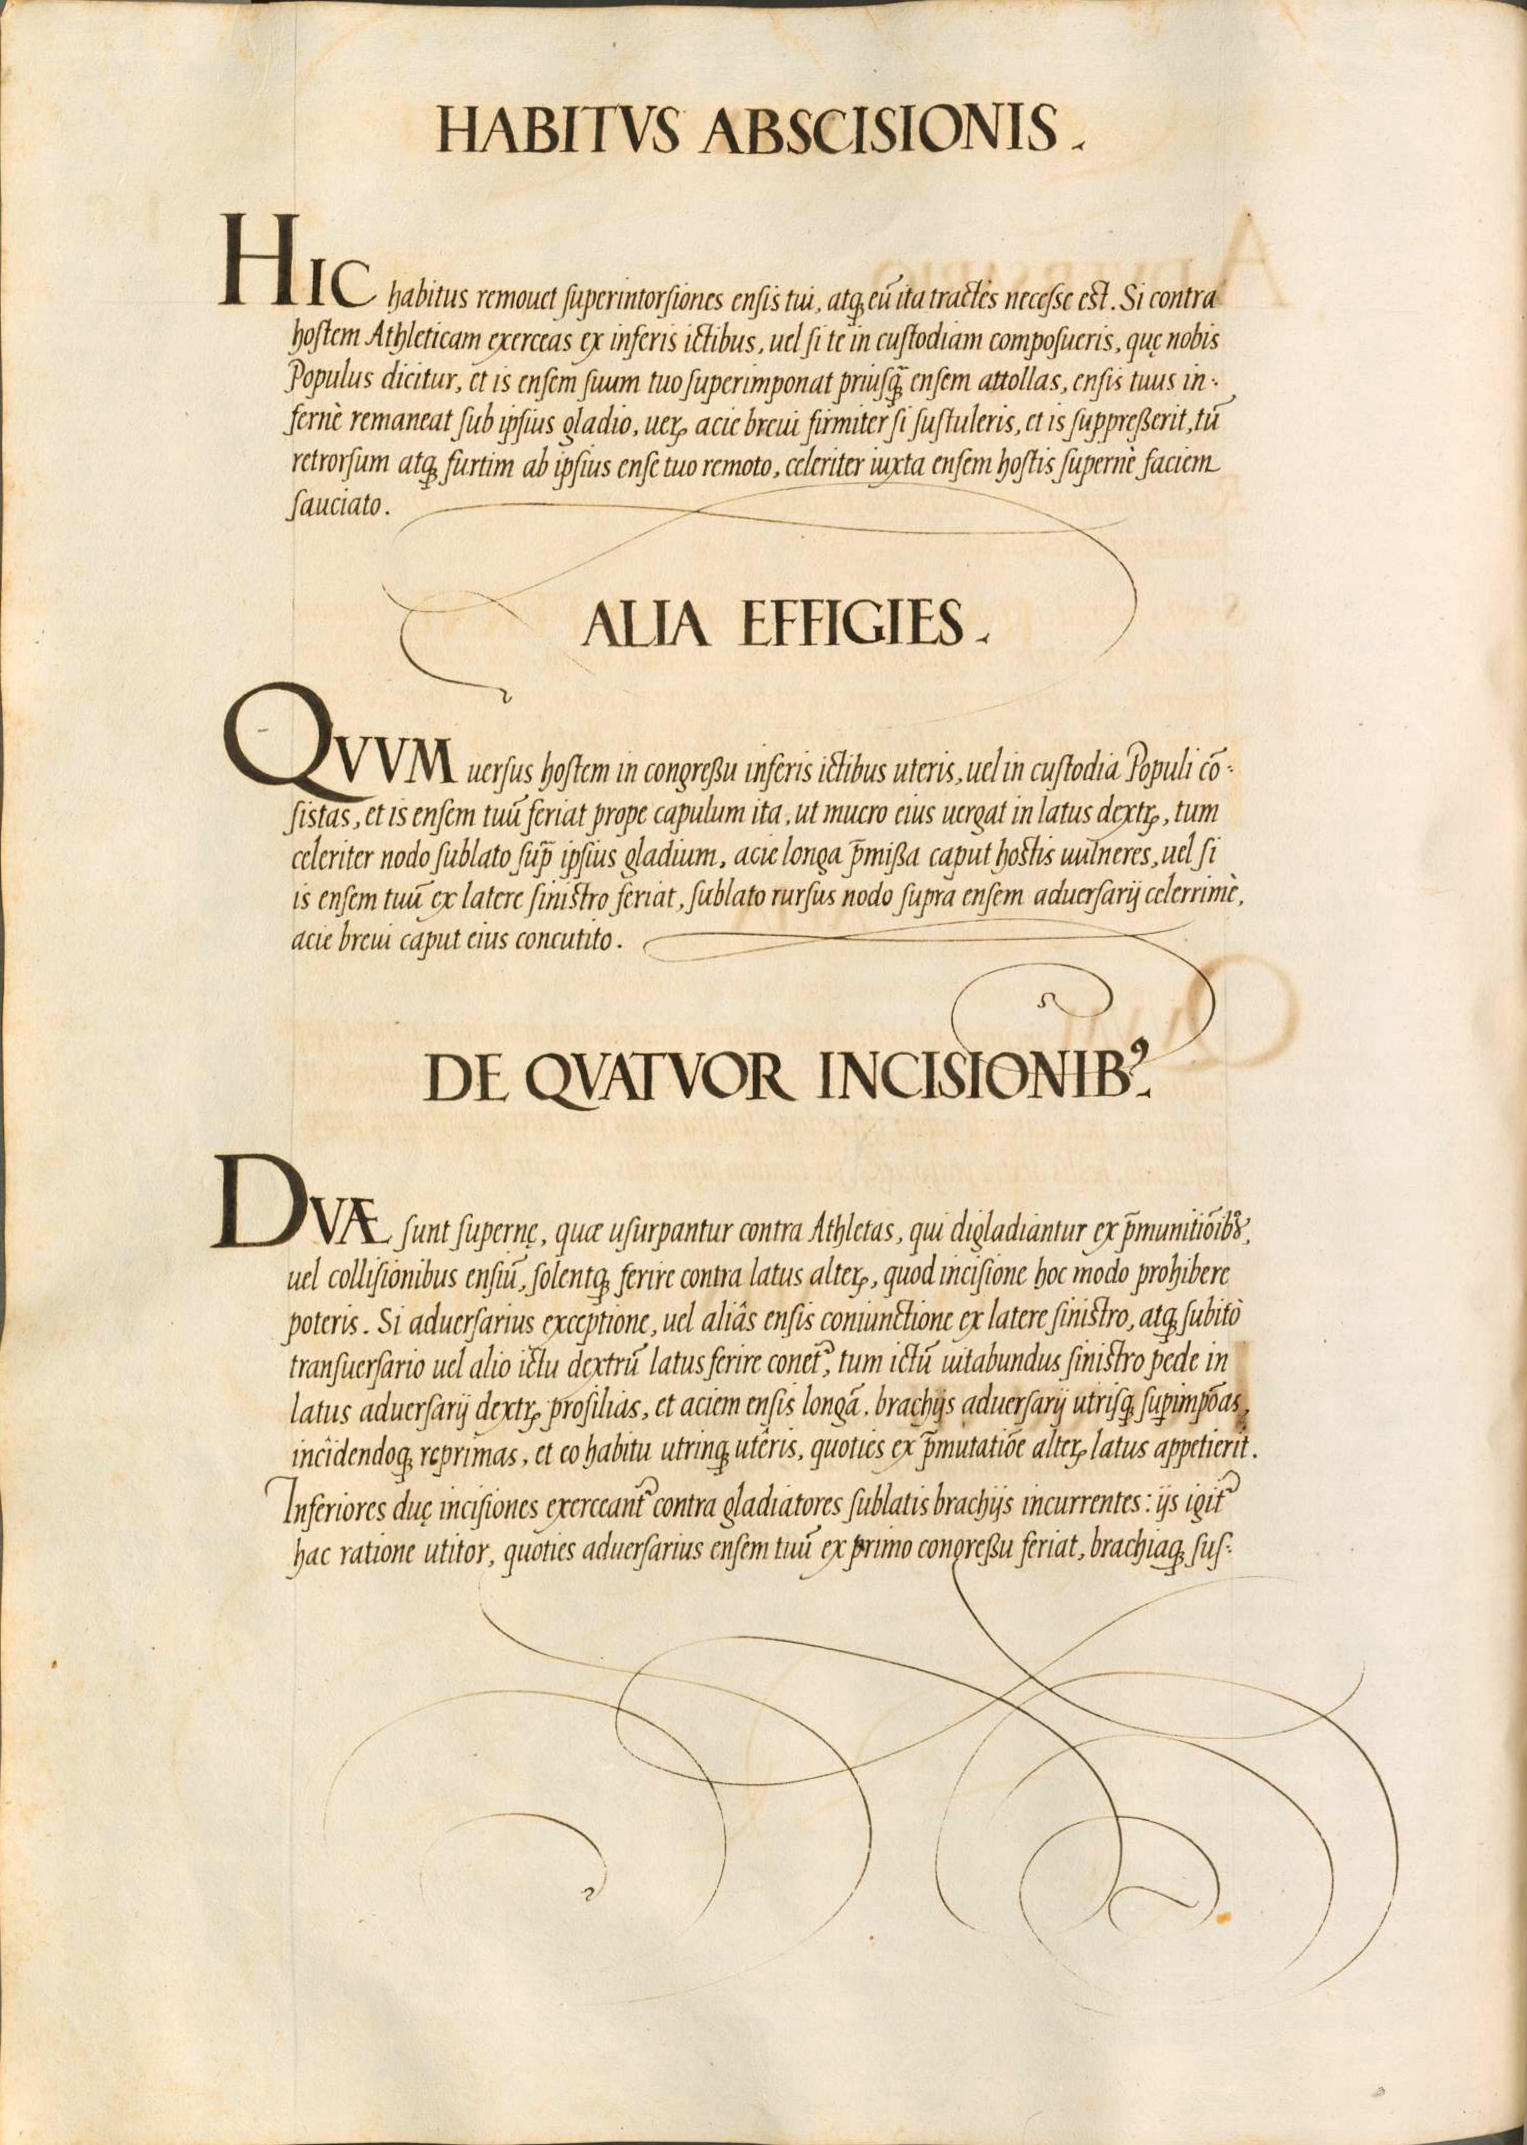 HABITVS ABSCISIONIS.
HIC habitus remouet superintorsiones ensis tui, atq; eũ ita tractes necesse est. Si contra
hostem Athleticam exerceas ex inferis ictibus, uel si te in custodiam composueris, quę nobis
Populus dicitur, et is ensem suum tuo superimponat priusq̃ ensem attollas, ensis tuus in-
fernè remaneat sub ipsius gladio, ueꝝ acie breui firmiter si sustuleris, et is suppreßerit, tũ
retrorsum atq; furtim ab ipsius ense tuo remoto, celeriter iuxta ensem hostis supernè faciem
sauciato.
ALIA EFFIGIES.
QVVM uersus hostem in congreßu inferis ictibus uteris, uel in custodia Populi cõ-
sistas, et is ensem tuũ feriat prope capulum ita, ut mucro eius uergat in latus dextꝝ, tum
celeriter nodo sublato sup̃ ipsius gladium, acie longa p̃mißa caput hostis uulneres, uel si
is ensem tuũ ex latere sinistro feriat, sublato rursus nodo supra ensem aduersarij celerrimè,
acie breui caput eius concutito.
DE QVATVOR INCISIONIBꝰ.
DVÆ sunt supernę, quæ usurpantur contra Athletas, qui digladiantur ex p̃munitiõibꝰ,
uel collisionibus ensiũ, solentq; ferire contra latus alteꝝ, quod incisione hoc modo prohibere
poteris. Si aduersarius exceptione, uel aliâs ensis coniunctione ex latere sinistro, atq; subitò
transuersario uel alio ictu dextrũ latus ferire conet᷑, tum ictũ uitabundus sinistro pede in
latus aduersarij dextꝝ prosilias, et aciem ensis longã, brachijs aduersarij utrisq; suꝑimpõas,
incîdendoq; reprimas, et eo habitu utrinq; utêris, quoties ex p̃mutatiõe alteꝝ latus appetierit.
Inferiores duę incisiones exerceant᷑ contra gladiatores sublatis brachijs incurrentes: ijs igit᷑
hac ratione utitor, quoties aduersarius ensem tuũ ex primo congreßu feriat, brachiaq; sus-